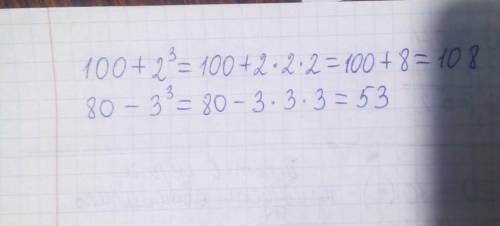 100 + 2³ = 100 + 2 · 2 · 2 = 100 + 8 = 108
80 - 3³ = 80 - 3 · 3 · 3 = 53